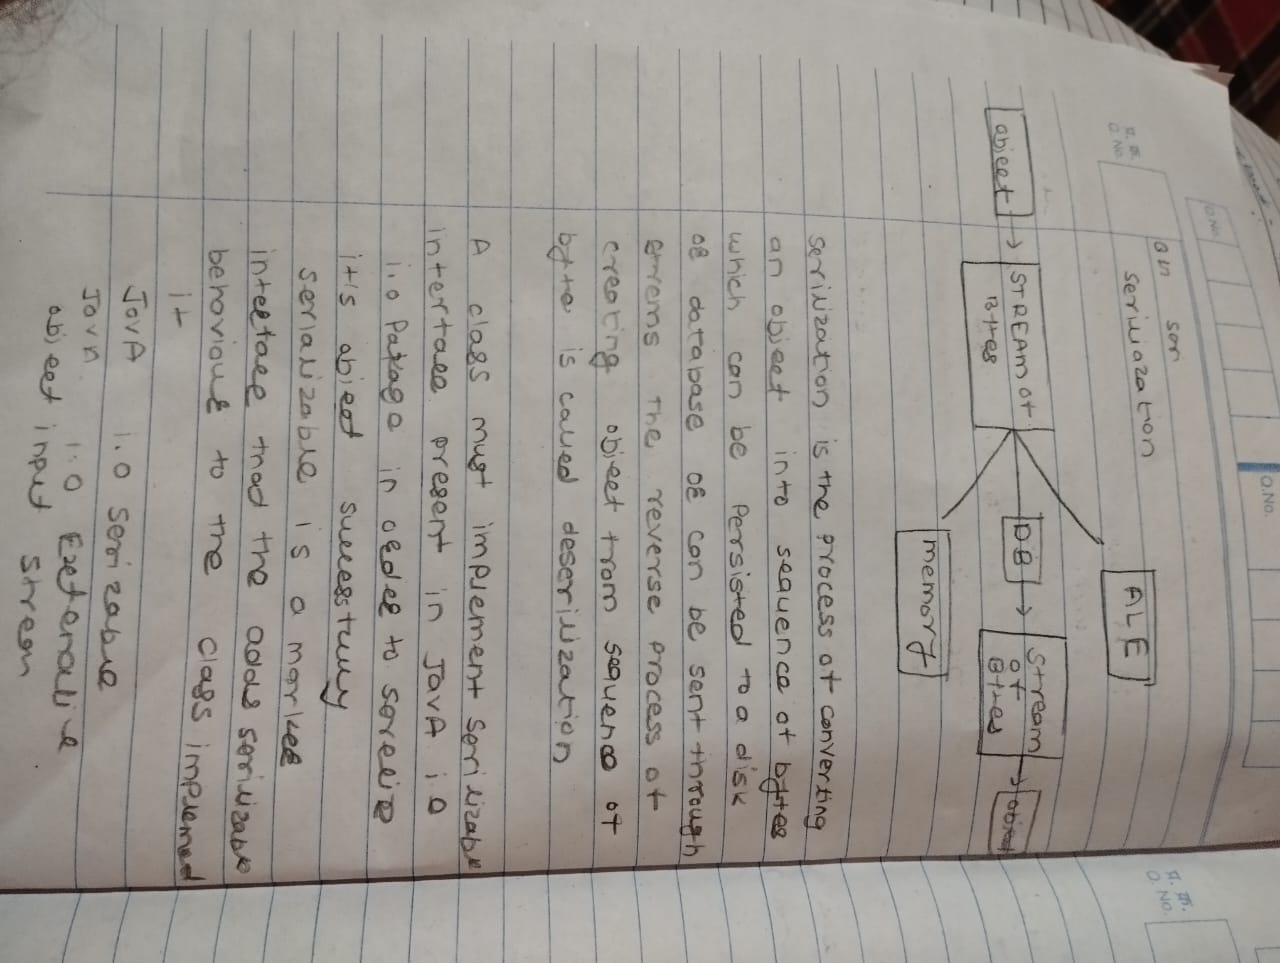 Q.No.
Q.No.
प्र. क्र.
Q. No.
प्र. क्र.
Q. No.
seriliazation
ALE
object
STREAM of
Bytes
DB
Stream
of
Bytes
object
memory
serilization is the process of converting
an object into sequence of bytes
which can be Persisted to a disk
or database or can be sent through
strems The reverse process of
creating object from sequence of
byte is called deserilization
A class must implement Serilizable
interface present in JavA i o
i.o Pakage in order to
it's object successfully
serializable is a marker
interface the adds serilizable
behaviour to the class implemed
it
JavA i.o Serizable
Java i.o
object input stream